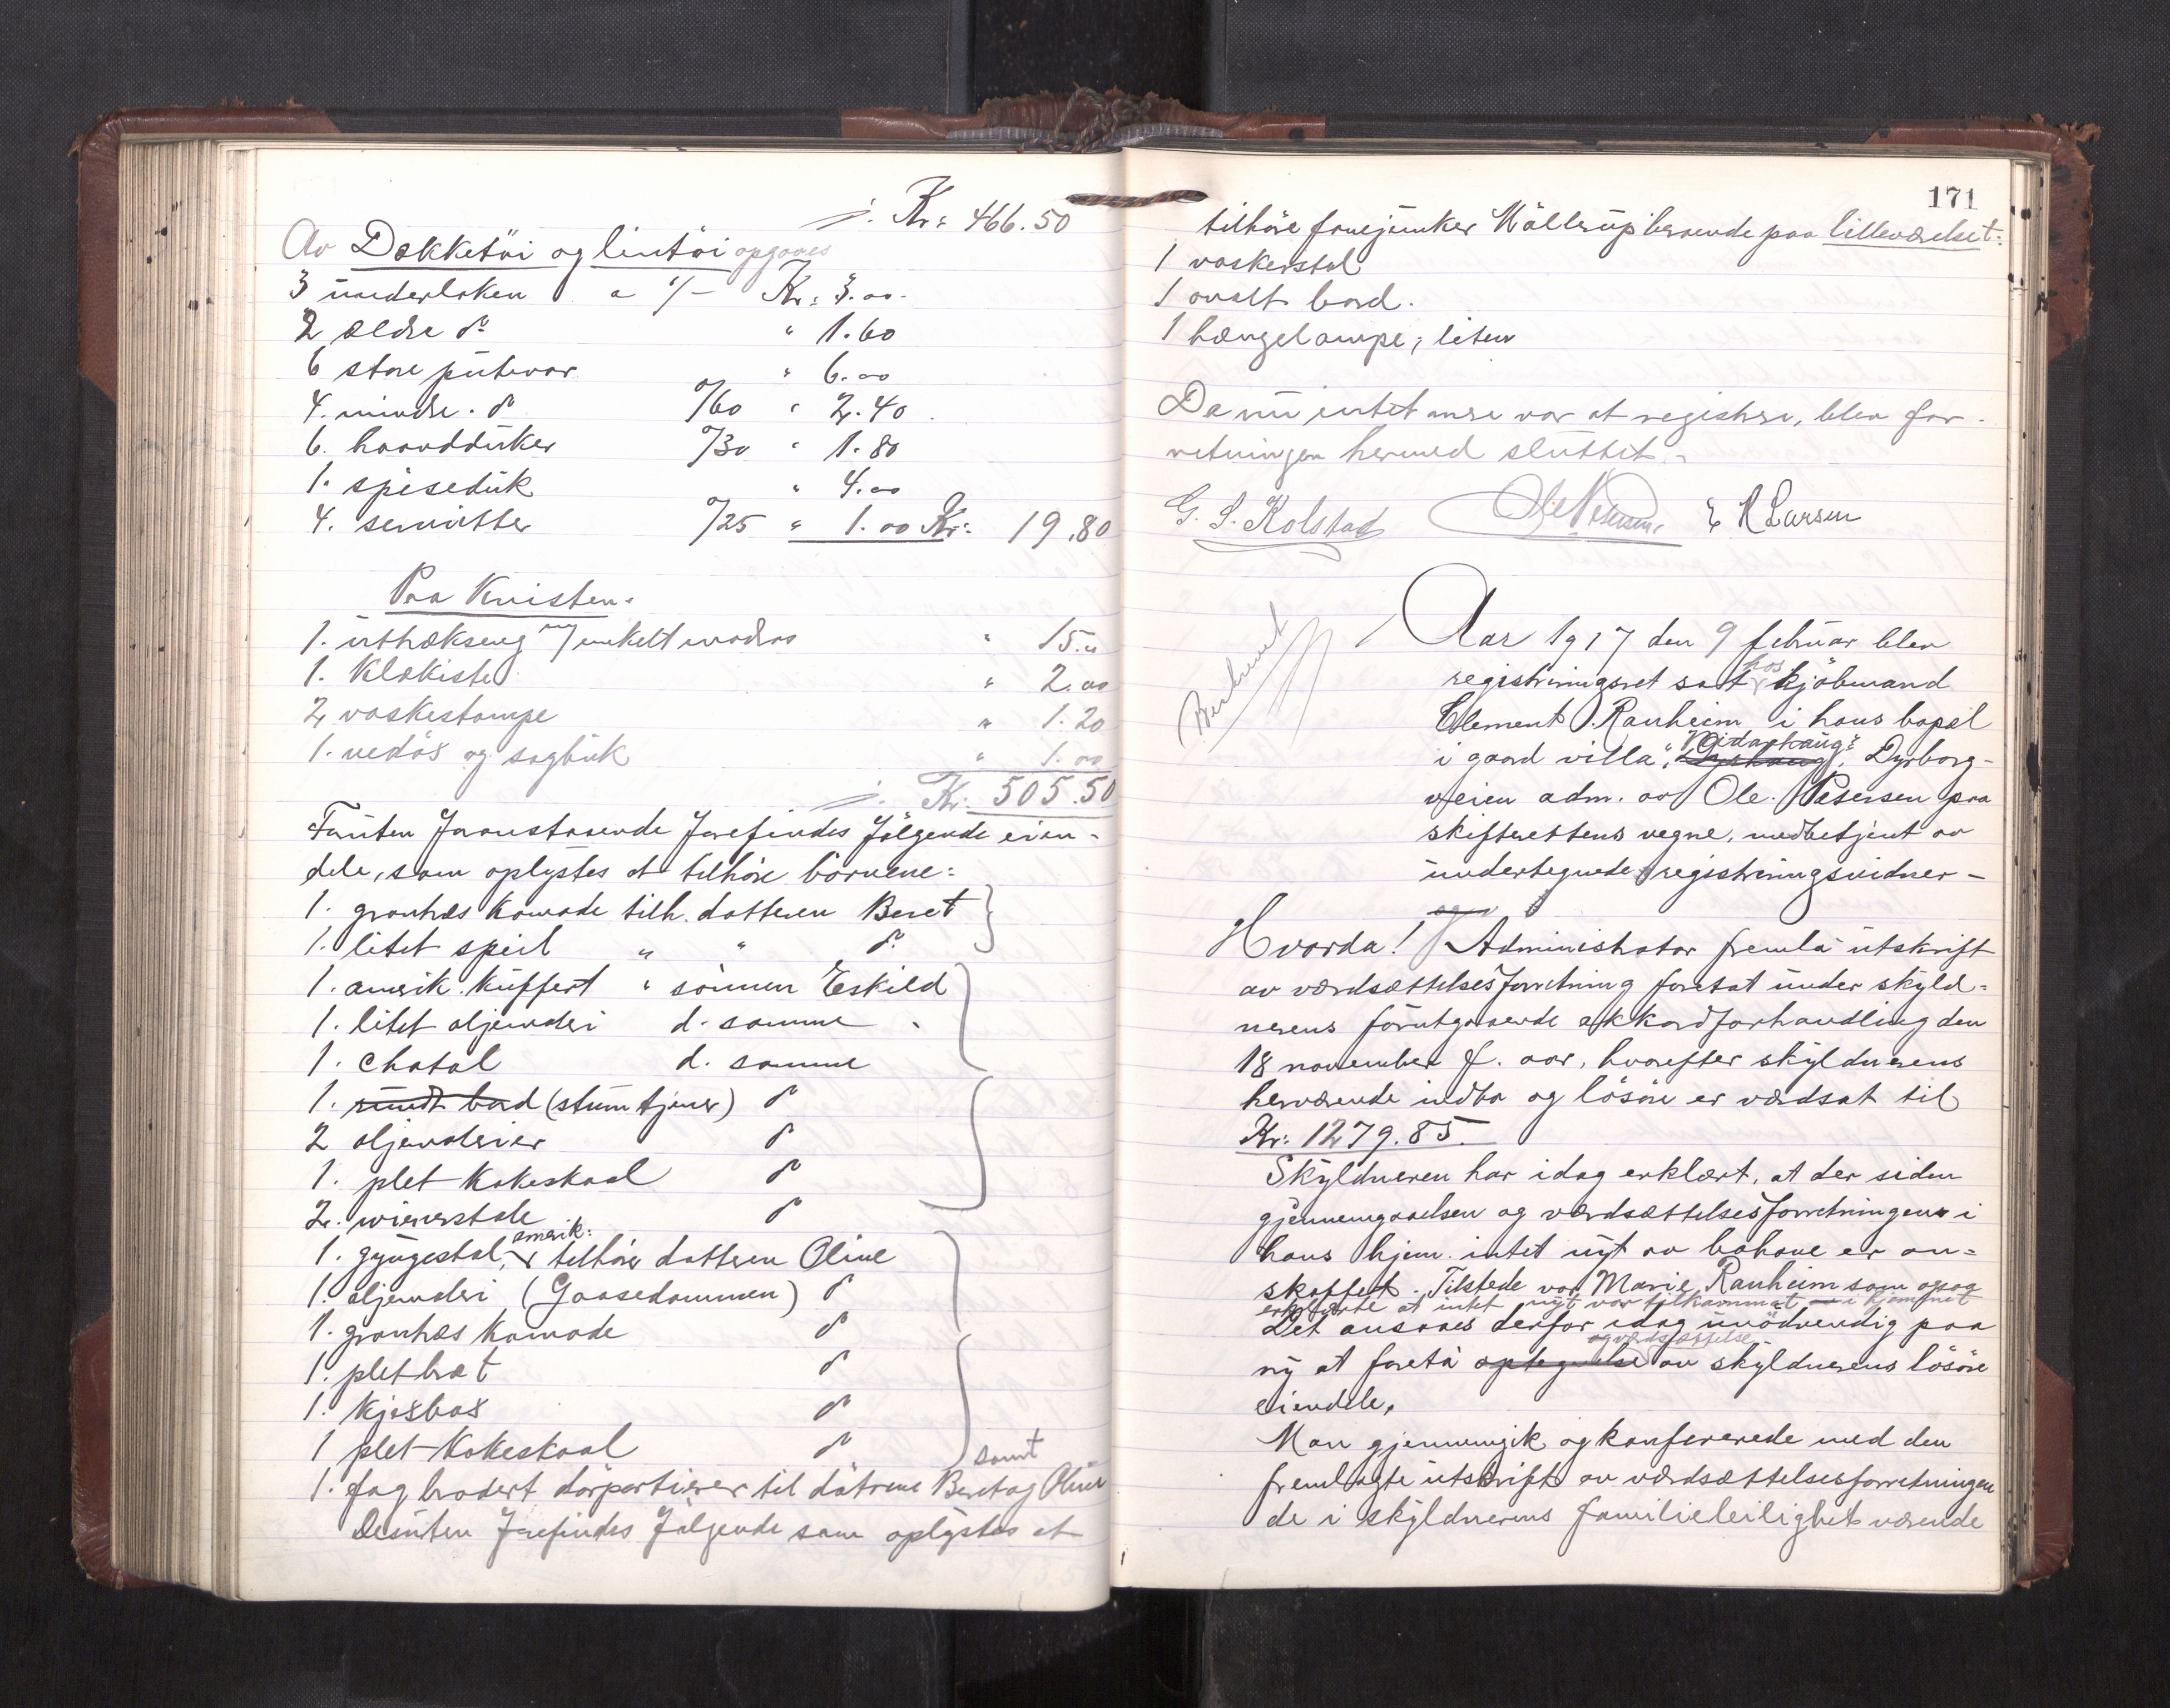 j. Kr: 466.50
Av Dækketöi og lintöi opgaves
3 underlaken a 1/- Kr: 3.00.
2 ældre do " 1.60
6 store putevar " 6.00
4. mindre. do °/60 " 2.40.
6. haandduker °/30 " 1.80
1. spiseduk " 4.00
4. servietter °/25 " 1.00 Kr: 19.80
Paa Kvisten.
1. uttrækseng m/ enkelt madras " 15.00
1. Klækiste " 2.00
2 vaskestampe " 1.20
1. vedöx og sagbuk " 1.00
j. Kr: 505.50
Foruten foranstaaende forefindes fölgende eien-
dele, som oplystes at tilhöre börnene:
1. granhæs Komode tilh. datteren Beret
1. litet speil " " do.
1. amerik. Kuffert " sönnen Eskild
1. litet oljemaleri d. samme
1. Chatol d. samme
1. rundt bord (stumtjener) do
2 oljemalerier do
1. plet Kakeskaal do
2. wienerstole do
1. gyngestol, amerik: tilhörer datteren Oline
1. oljemaleri (Gaasedammen) do
1. granhæs Komode do
1. pletbræt do
1. Kjexbox do
1 plet-Kakeskaal do
samt
1. fag brodert dörportierer til dötrene Beret og Oline
Desuten forefindes fölgende som oplystes at
171
tilhöre fanejunker Möllerup beroende paa lilleværelset:
1 vaskerstol
1 ovalt bord.
1 hængelampe, liten
Da nu intet mere var at registrere, blev for-
retningen hermed sluttet.-
G. S. Kolstad Ole Petersen. E A Larsen
Aar 1917 den 9 februar blev
registreringsret sat hos kjöbmand
Clement Ranheim i hans bopæl
i gaard villa "Nidarhaug", Dyrborg-
veien adm. av Ole Petersen paa
skifterettens vegne, medbetjent av
undertegnede registreringsvidner-
og
Hvorda! Administrator fremla utskrift
av værdsættelsesforretning foretat under skyld=
nerens forutgaaende akkordforhandling den
18 november f. aar, hvorefter skyldnerens
herværende indbo og lösöre er værdsat til
Kr: 1279.85.
Skyldneren har idag erklært, at der siden
gjennemgaaelsen og værdsættelsesforretningen i
hans hjem intet nyt av bohave er an=
skaffet. Tilstede var Marie Ranheim som ogsaa
erklærte at intet nyt var tilkommet i hjemmet
Det ansaaes derfor idag unödvendig paa
og værdsættelse
ny at foreta optegnelse av skyldnerens lösöre
eiendele.
Man gjennemgik og konfererede med den
fremlagte utskrift av værdsættelsesforretningen
de i skyldnerens familieleilighet værende